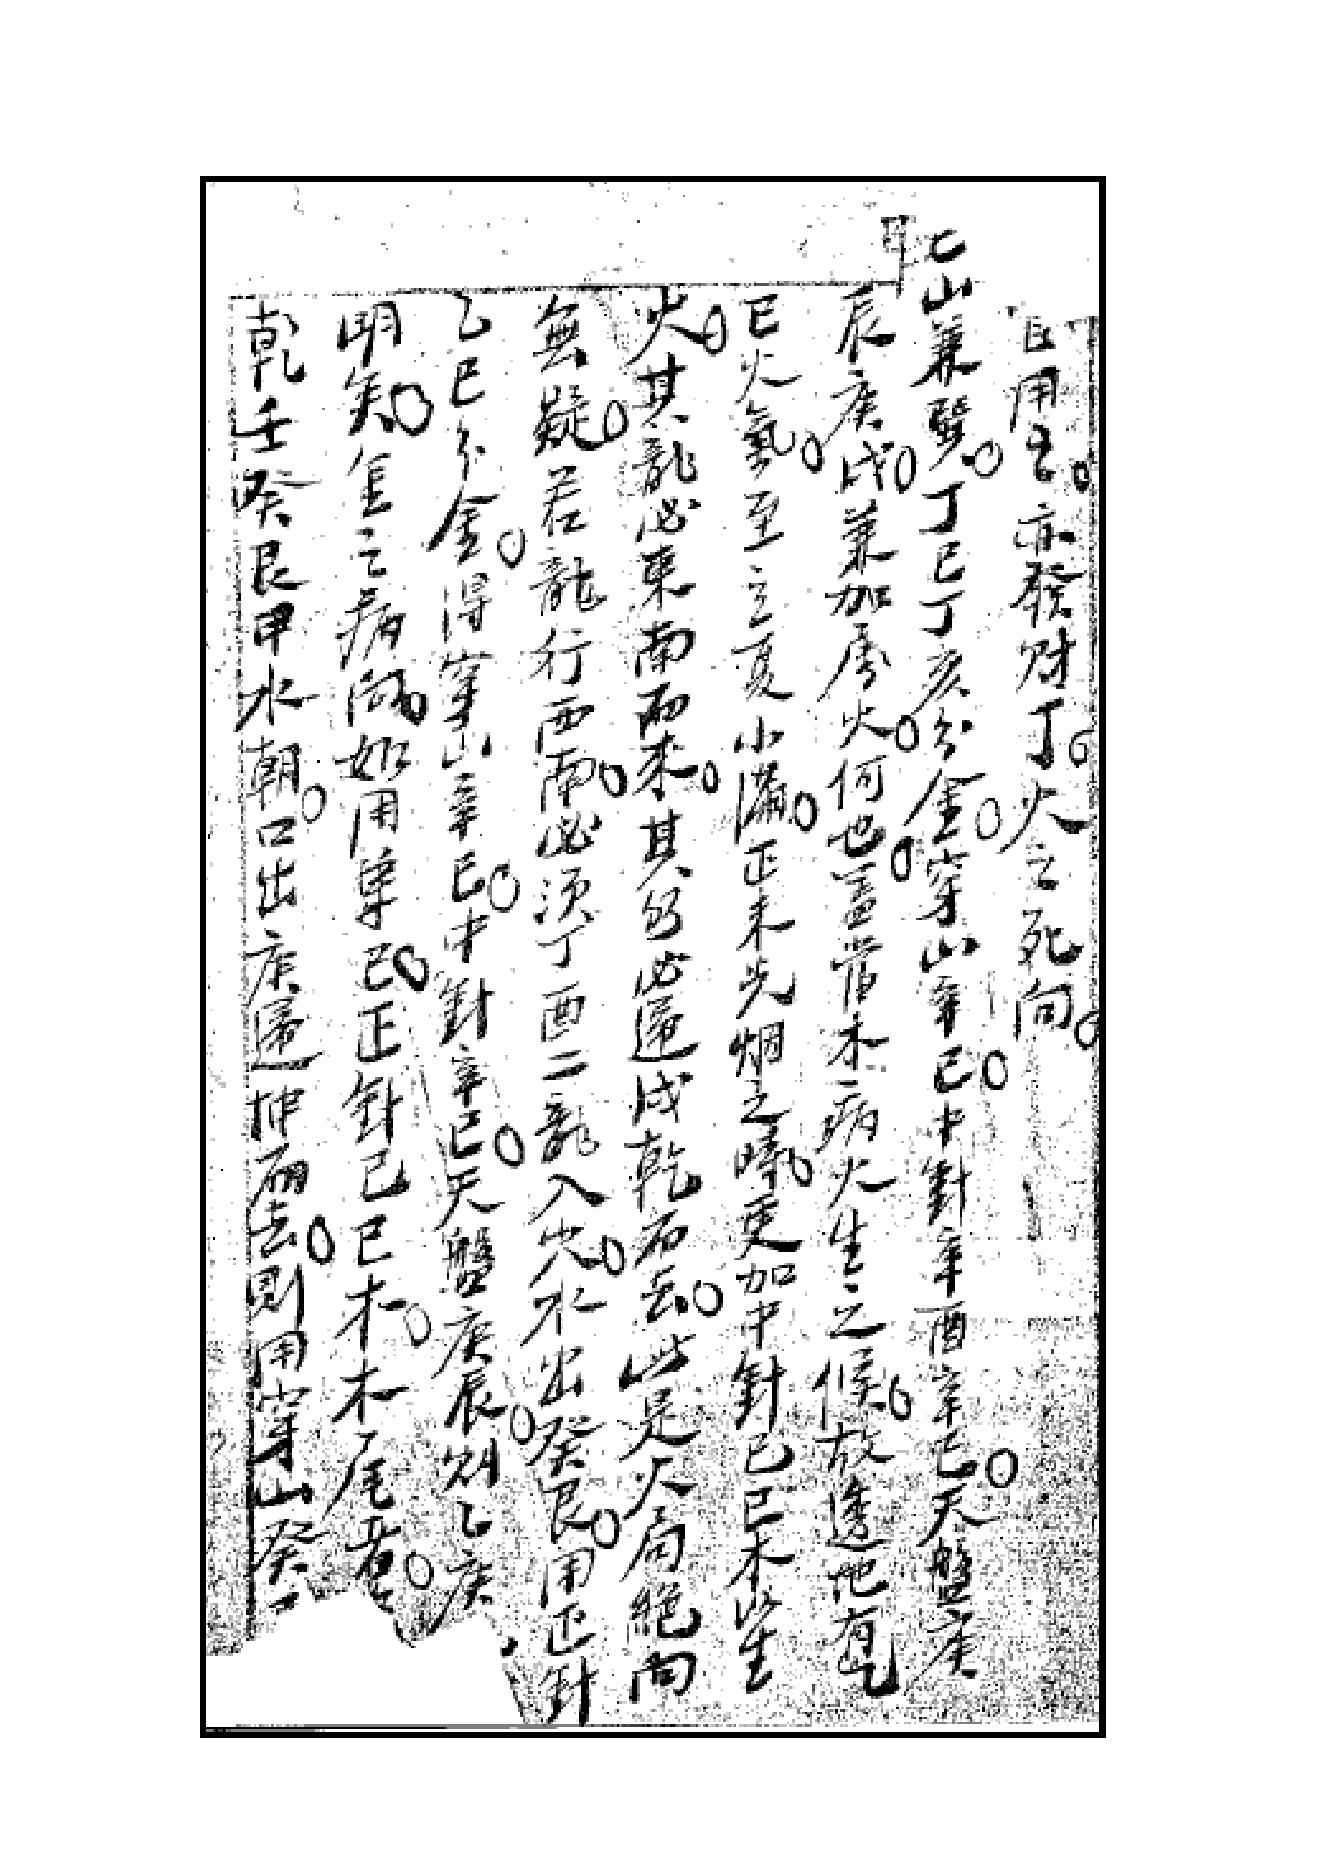 用之亦發財丁火之死向
山兼巽丁巳丁亥分金穿山辛巳中針辛酉辛巳天盤庚
辰庚戌兼加屬火何也蓋當木病火生之候故透地有
巳火氣至立夏小滿正未光烟之曦更加中針己巳木生
火其龍必東南而來其必歸戌乾而去此是火局絕向
無疑若龍行西南必須丁酉二龍入穴水出癸艮用正針
乙巳分金得穿山辛巳中針辛巳天盤庚辰則乙庚
明矣金之病向如用單巳正針己巳木木尾者
乾壬癸艮甲水朝口出庚歸坤而去則用穿山癸